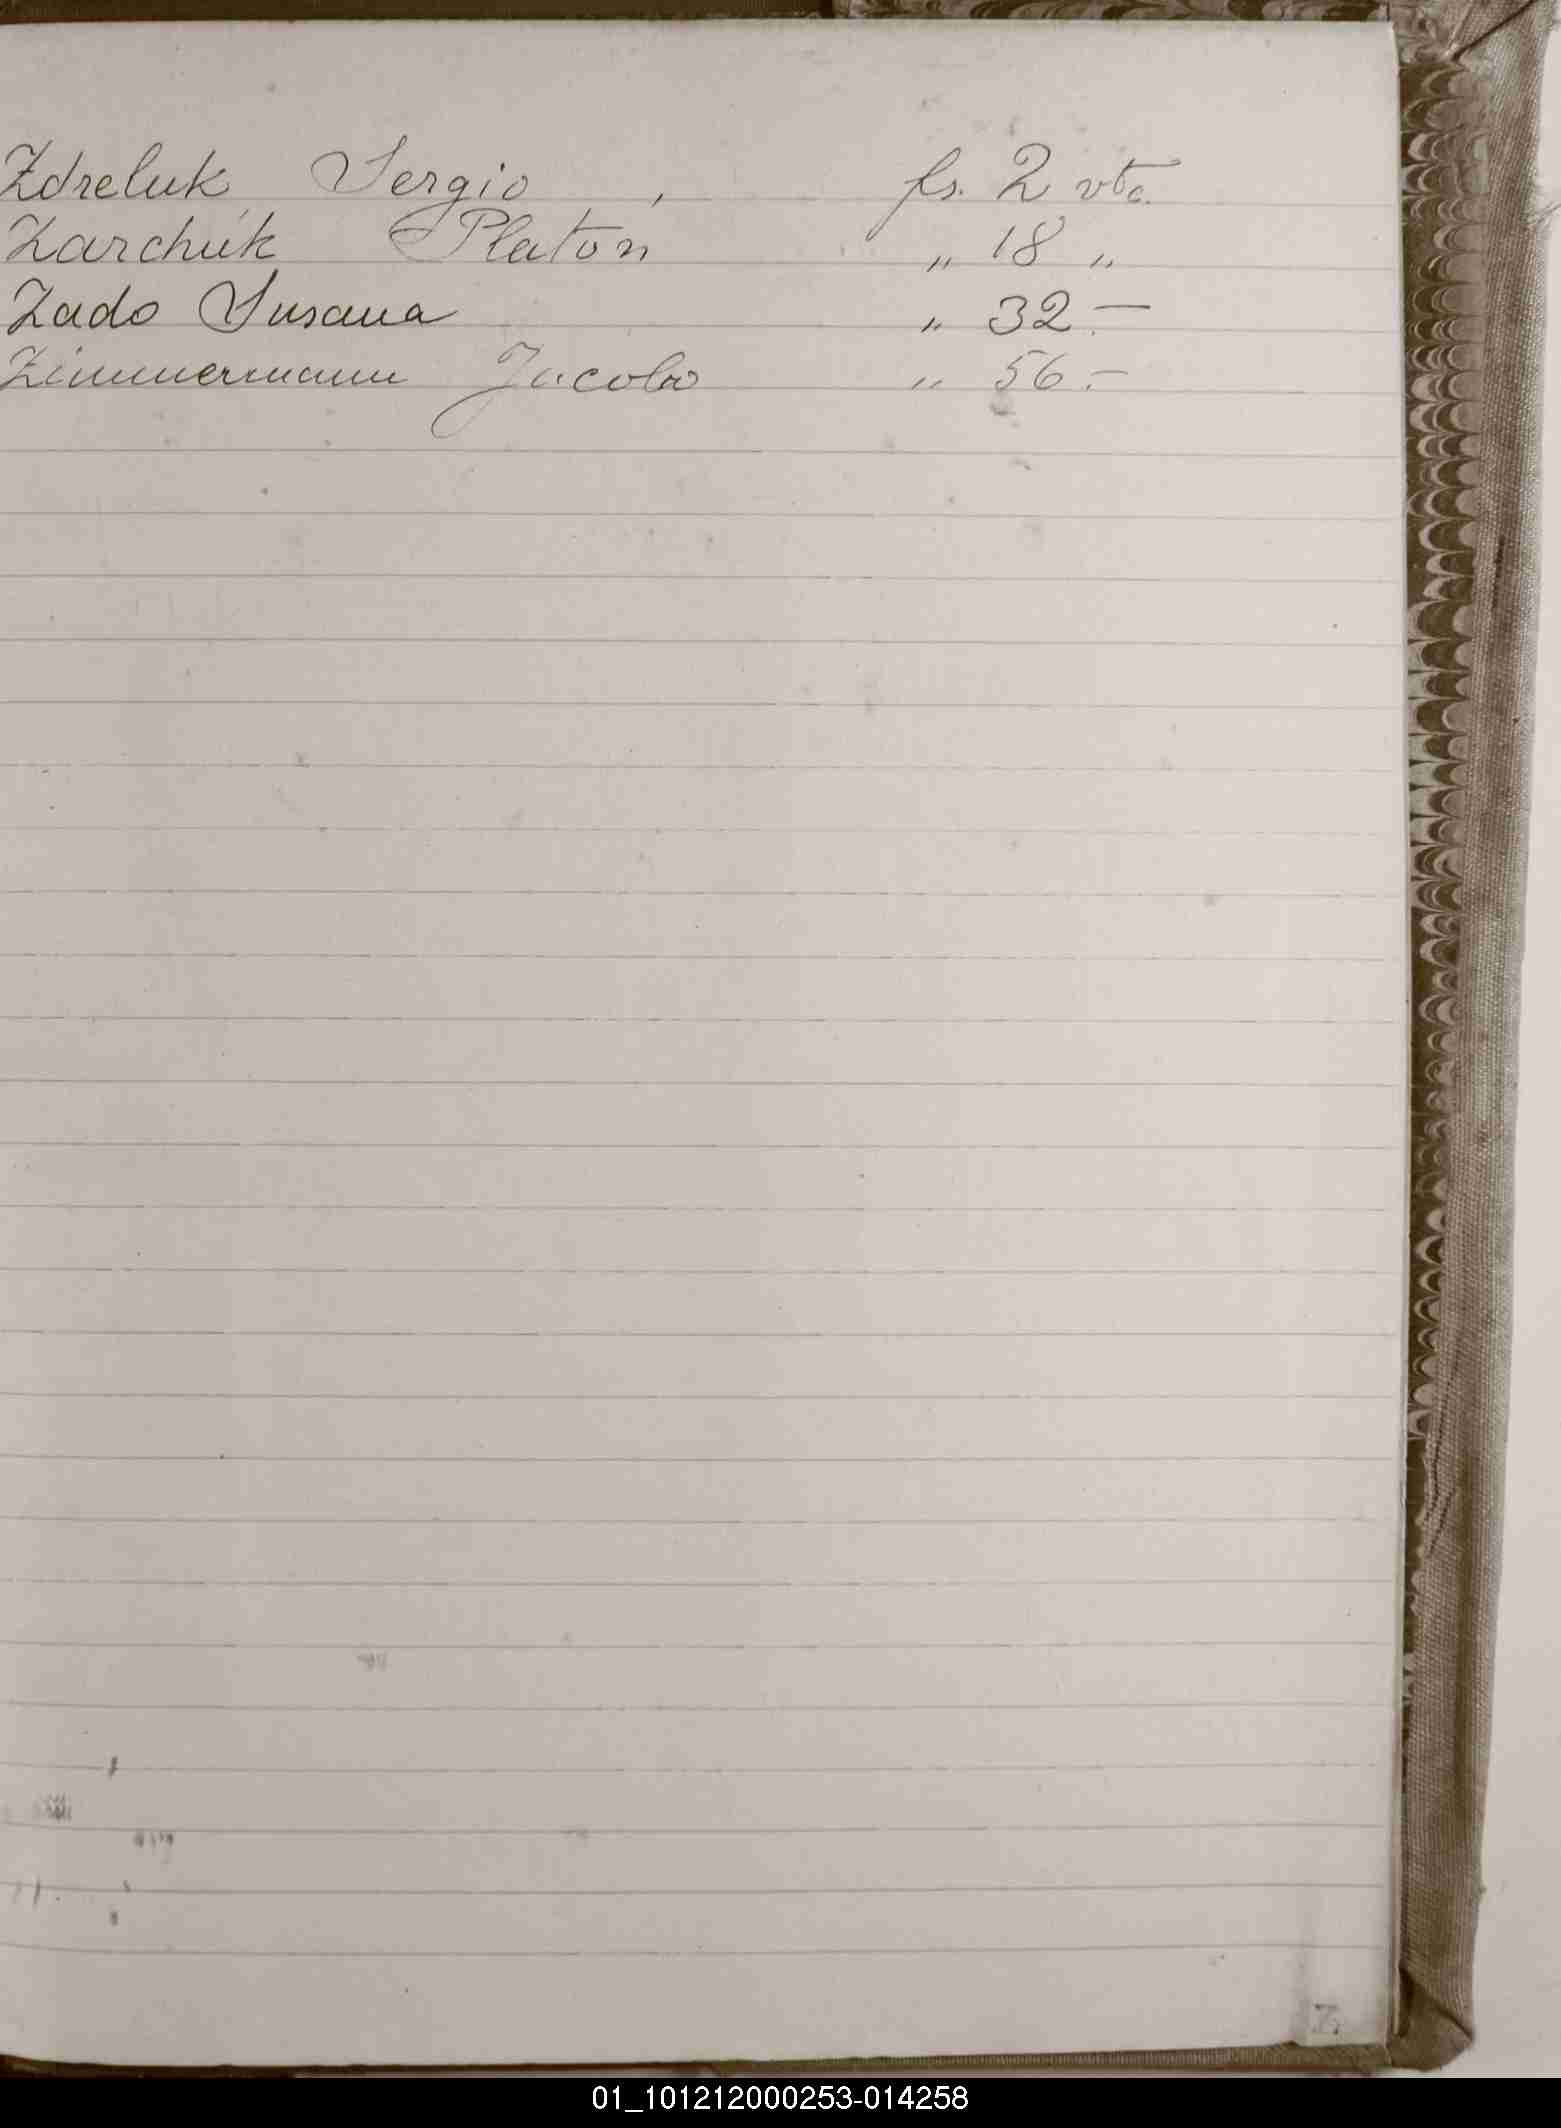 Zdreluk Sergio , fs. 2 vta.
Zarchúk Platon " 18 "
Zado Susana " 32.-
Zimmermann Jacobo " 56.-
Z
01_101212000253-014258